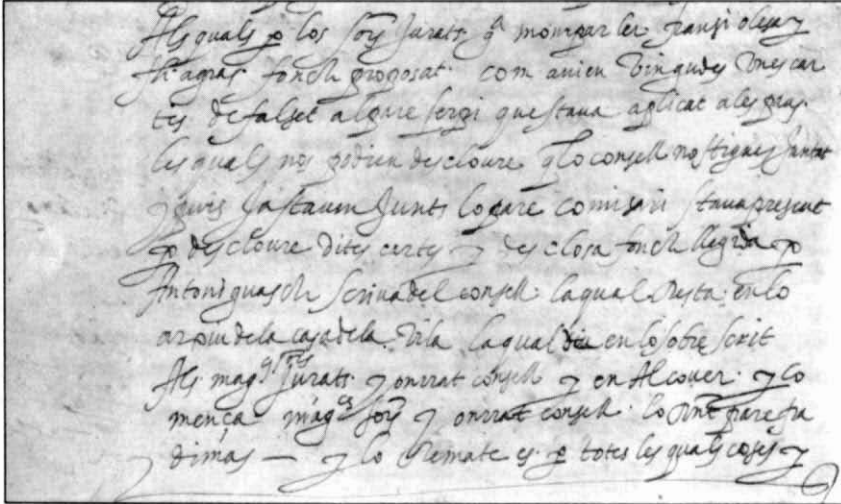 Als quals p los sors Jurats q monparler Jransi olesa y
fh agras fonch proposat com avien vingudes unes car
tes de falset al pare sergi que stava aplicat a les gras
les quals nos podien descloure q lo consell no stigues Juntat
y puis ja staven Junts lo pare comisari stava present
p descloure dites cartes y desclosa fonch llegida p
Antoni guasch scriva del consell la qual resta en lo
arxiu de la casa dela vila la qual diu en lo sobre scrit
Als magchs Jurats y onrrat consell y en Alcover y co
mença magchs sors y onrrat consell lo Rnt pare fra
dimas — y lo Remate es p totes les quals coses y